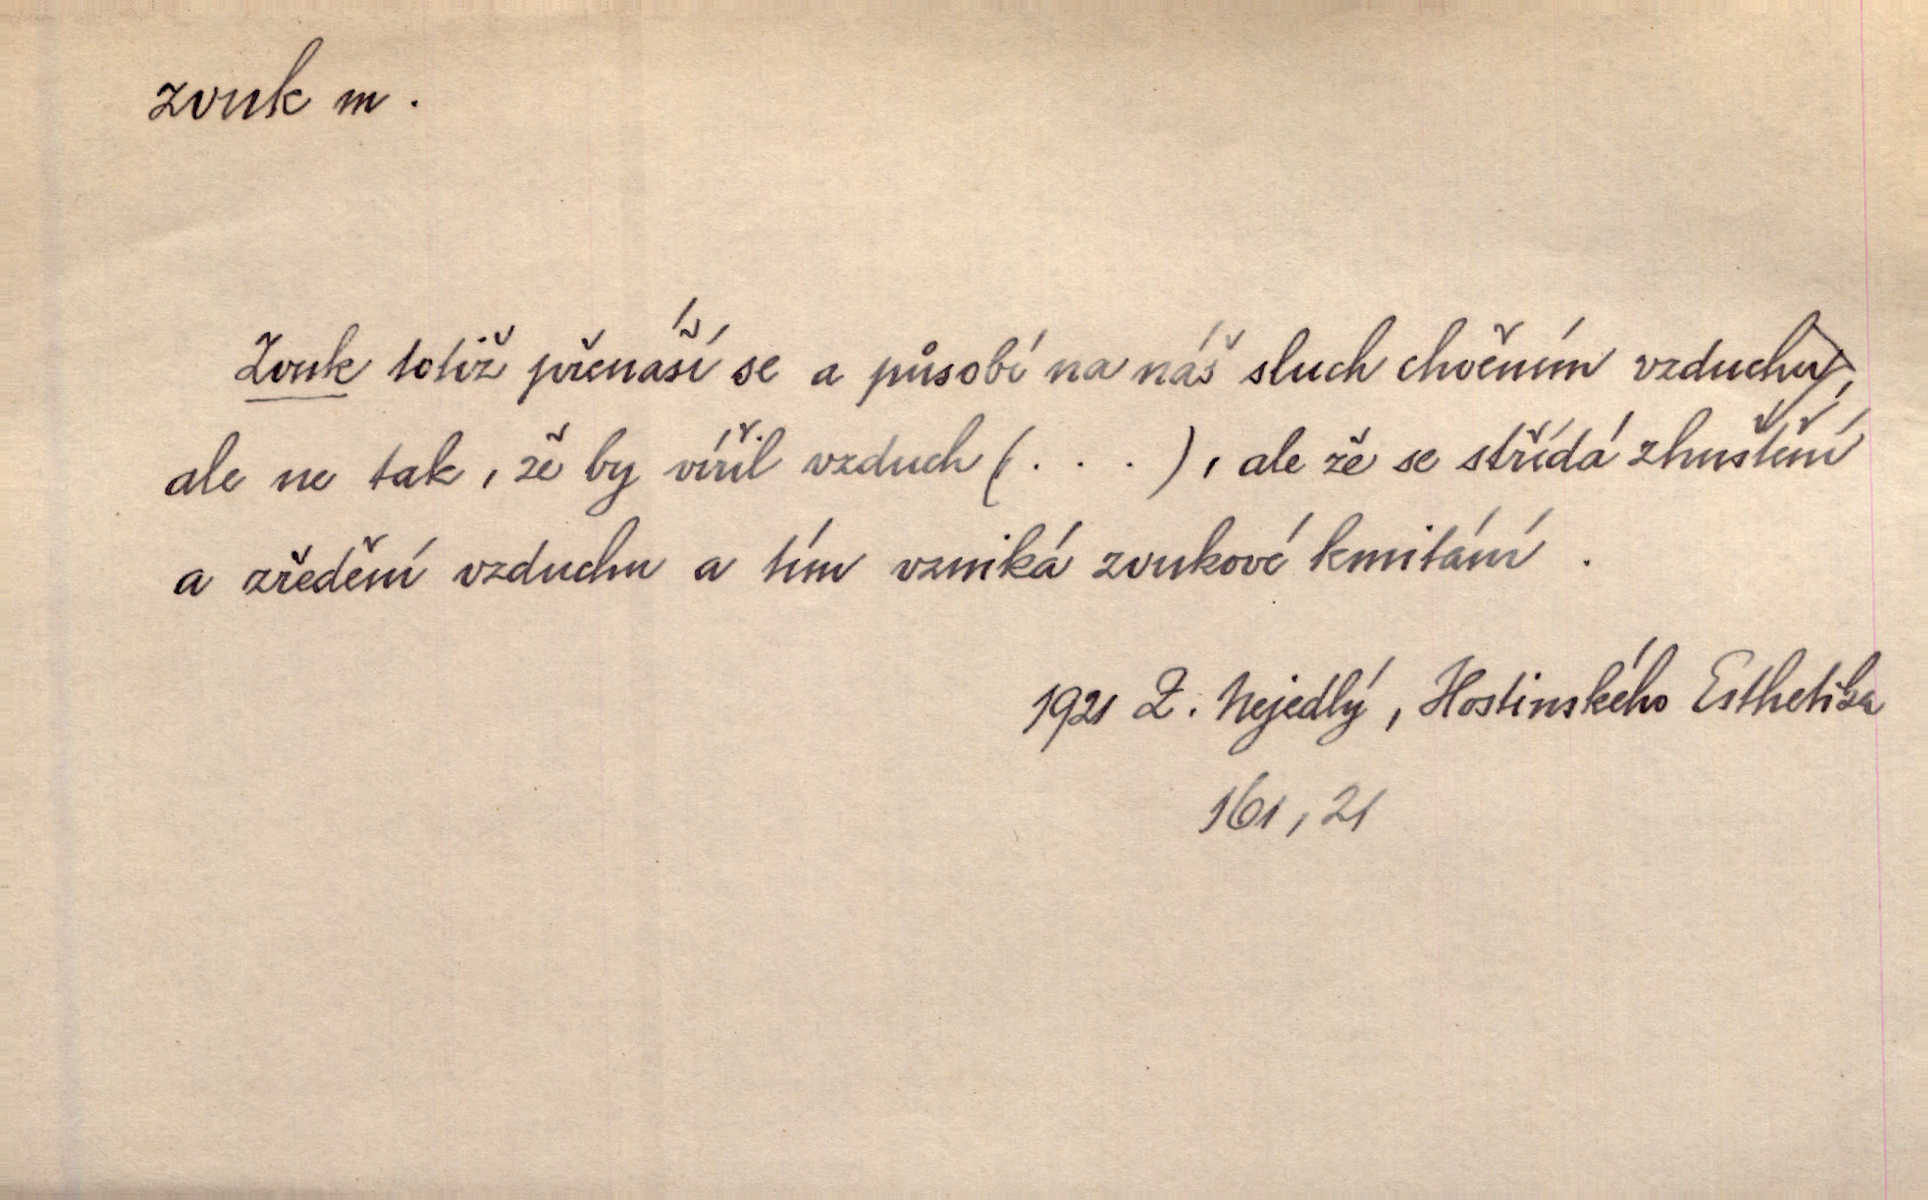 zvuk m.
Zvuk totiž přenáší se a působí na náš sluch chvěním vzduchu,
ale ne tak, že by vířil vzduch (...), ale že se střídá zhuštění
a zředění vzduchu a tím vzniká zvukové kmitání.
1921 Z. Nejedlý, Hostinského Esthetika
161, 21